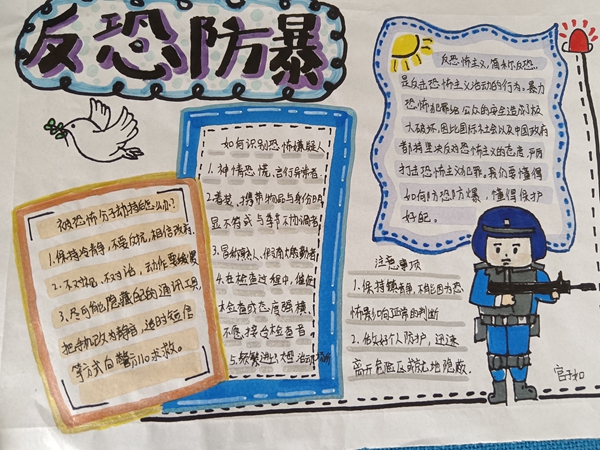 反恐防暴
反恐怖主义,简称反恐。
是反击恐怖主义活动的行为,暴力
恐怖犯罪给公众的安全造成极
大破坏,因此国际社会以及中国政府
都持坚决反对恐怖主义的态度,严厉
打击恐怖主义犯罪。我们要懂得
如何防恐防暴,懂得保护
好自己。
如何识别恐怖嫌疑人
1.神情恐慌,言行异常者。
2.着装、携带物品与身份明
显不符或与季节不协调者
3.冒称熟人、假献殷勤者
4.在检查过程中,催促
检查或态度强横、
不愿接合检查者
5.频繁进入大型活动场所
被恐怖分子劫持后怎么办?
1.保持冷静,不要反抗,相信政府。
2.不对视,不对话,动作要缓慢
3.尽可能隐藏自己的通讯工具,
把手机改为静音,适时短信
等方式向警方110求救。
注意事项
1.保持镇静,不能因为恐
怖影响正常的判断
2.做好个人防护,迅速
离开危险区或就地隐蔽.
宫子如